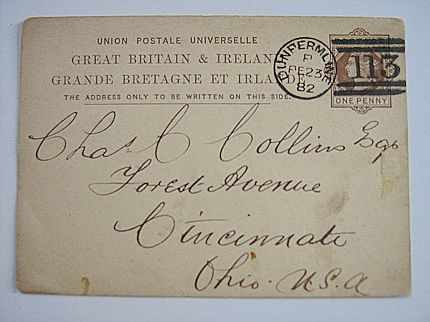 UNION POSTALE UNIVERSELLE
GREAT BRITAIN & IRELAND
GRANDE BRETAGNE ET IRLANDE
THE ADDRESS ONLY TO BE WRITTEN ON THIS SIDE.
DUNFERMLINE
FE 23
82
113
ONE PENNY
Chas. C Collins Esq
Forest Avenue
Cincinnati
Ohio. U.S.A